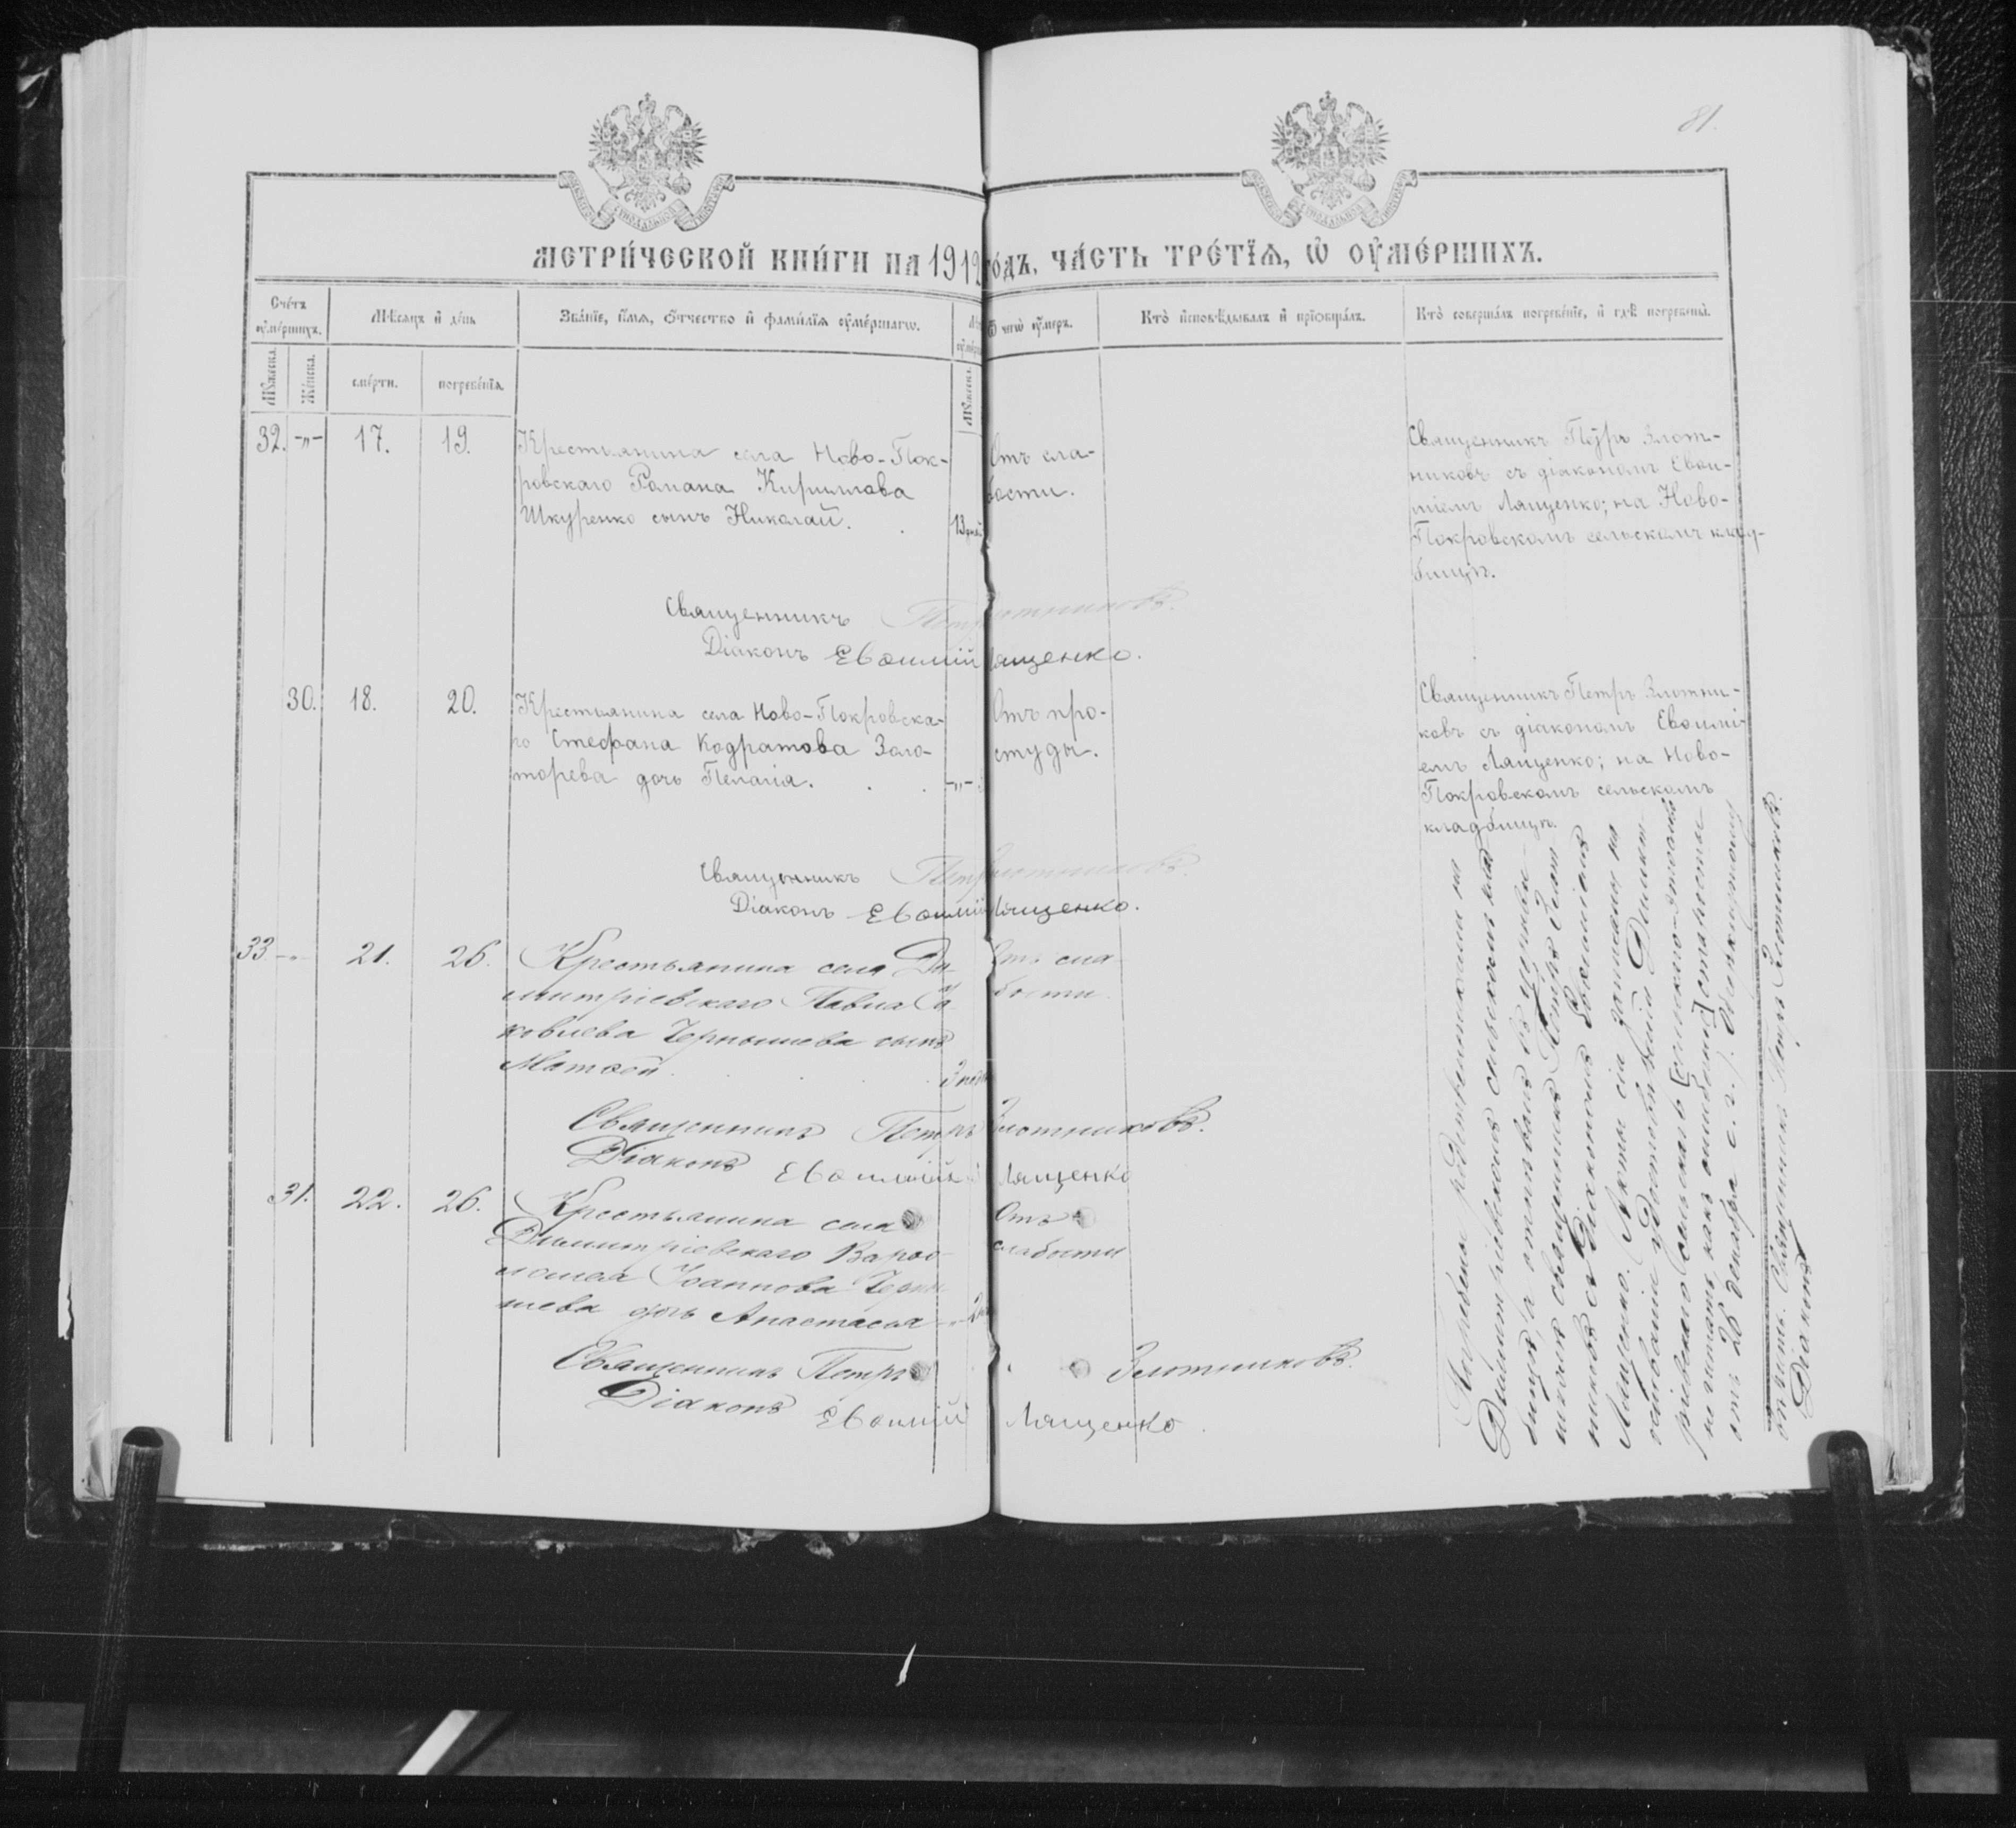 81.
МЕТРИ́ЧЕСКОЙ КНИ́ГИ НА 1912 ГО́ДЪ, ЧА́СТЬ ТРЕ́ТЇѦ, Ѡ҆ ОУ҆МЕ́РШИХЪ.
Сче́тъ оу҆ме́ршихъ.
Мѣ́сѧцъ и҆ де́нь
Зва́нїе, и҆́мѧ, ѻ҆́тчество и҆ фами́лїѧ оу҆ме́ршагѡ.
Ѿ чегѡ̀ оу҆́меръ.
Кто̀ и҆сповѣ́дывалъ и҆ прїѡбща́лъ.
Кто̀ соверша́лъ погребе́нїе, и҆ гдѣ̀ погребены̀.
Мꙋ́жеска.
Же́нска.
сме́рти.
погребе́нїѧ.
Мꙋ́жеска.
32. -„- 17. 19.
Крестьянина села Ново-Пок-
ровскаго Романа Кириллова
Шкуренко сынъ Николай.
13 дней
Отъ сла-
бости.
Священникъ Петръ Злот-
никовъ съ діакономъ Евѳи-
міемъ Лященко; на Ново-
Покровскомъ сельскомъ клад-
бищѣ.
Священникъ Петръ Злотниковъ.
Діаконъ Евѳимій Лященко.
30. 18. 20.
Крестьянина села Ново-Покровска-
го Стефана Кодратова Золо-
торева дочь Пелагія.
-„-
Отъ про-
студы.
Священникъ Петръ Злотни-
ковъ съ діакономъ Евѳимі-
емъ Лященко; на Ново-
Покровскомъ сельскомъ
кладбищѣ.
Священникъ Петръ Злотниковъ.
Діаконъ Евѳимій Лященко.
33 -„- 21. 26.
Крестьянина села Ди-
митріевскаго Павла Іа-
ковлева Чернышева сынъ
Матѳей.
Отъ сла-
бости
Священникъ Петръ Злотниковъ.
Діаконъ Евѳимій Лященко
31. 22. 26.
Крестьянина села
Димитріевскаго Варѳо-
ломея Іоаннова Черны-
шева дочь Анастасія
Отъ
слабости
Священникъ Петръ Злотниковъ.
Діаконъ Евѳимій Лященко.
Погребены родственниками на
Димитріевскомъ сельскомъ клад-
бищѣ, а отпѣвалъ
священникъ Петръ Злот-
никовъ съ Діакономъ Евѳиміемъ
Лященко. Акты сіи записаны на
основаніи Димит-
ріевскаго сельскаго
не читать какъ ошибочно старосты
отъ 26 декабря с. г.
Священникъ Петръ Злотниковъ.
Діаконъ